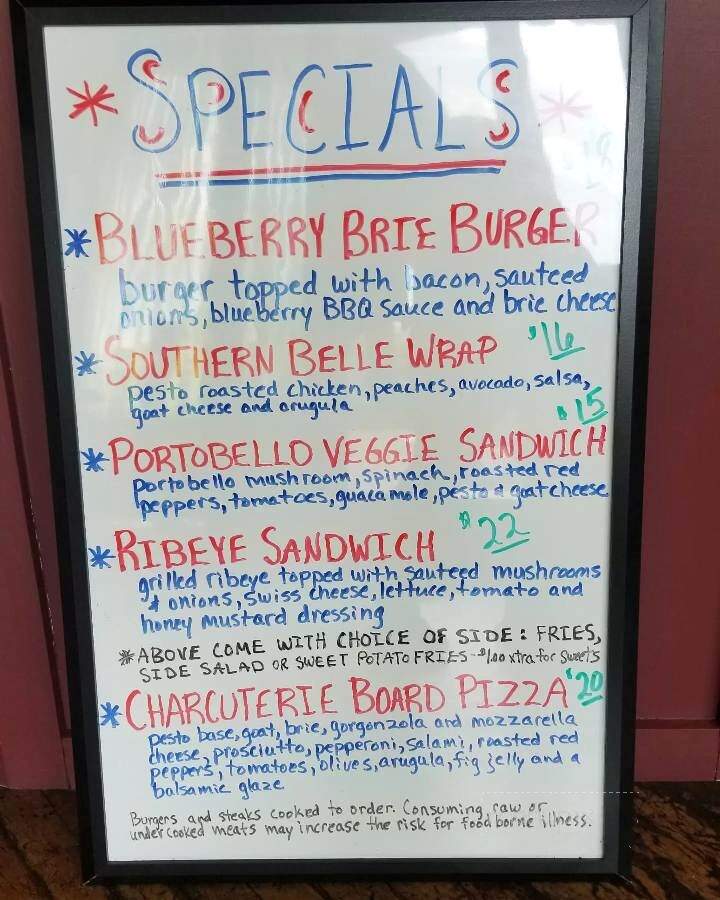 * SPECIALS *
$18
* BLUEBERRY BRIE BURGER
burger topped with bacon, sauteed
onions, blueberry BBQ sauce and brie cheese
* SOUTHERN BELLE WRAP $16
pesto roasted chicken, peaches, avocado, salsa,
goat cheese and arugula
$15
* PORTOBELLO VEGGIE SANDWICH
portobello mushroom, spinach, roasted red
peppers, tomatoes, guacamole, pesto & goat cheese
* RIBEYE SANDWICH $22
grilled ribeye topped with sauteed mushrooms
& onions, swiss cheese, lettuce, tomato and
honey mustard dressing
* ABOVE COME WITH CHOICE OF SIDE: FRIES,
SIDE SALAD OR SWEET POTATO FRIES - $1.00 xtra for sweets
* CHARCUTERIE BOARD PIZZA $20
pesto base, goat, brie, gorgonzola and mozzarella
cheese, prosciutto, pepperoni, salami, roasted red
peppers, tomatoes, olives, arugula, fig jelly and a
balsamic glaze
Burgers and steaks cooked to order. Consuming raw or
undercooked meats may increase the risk for food borne illness.